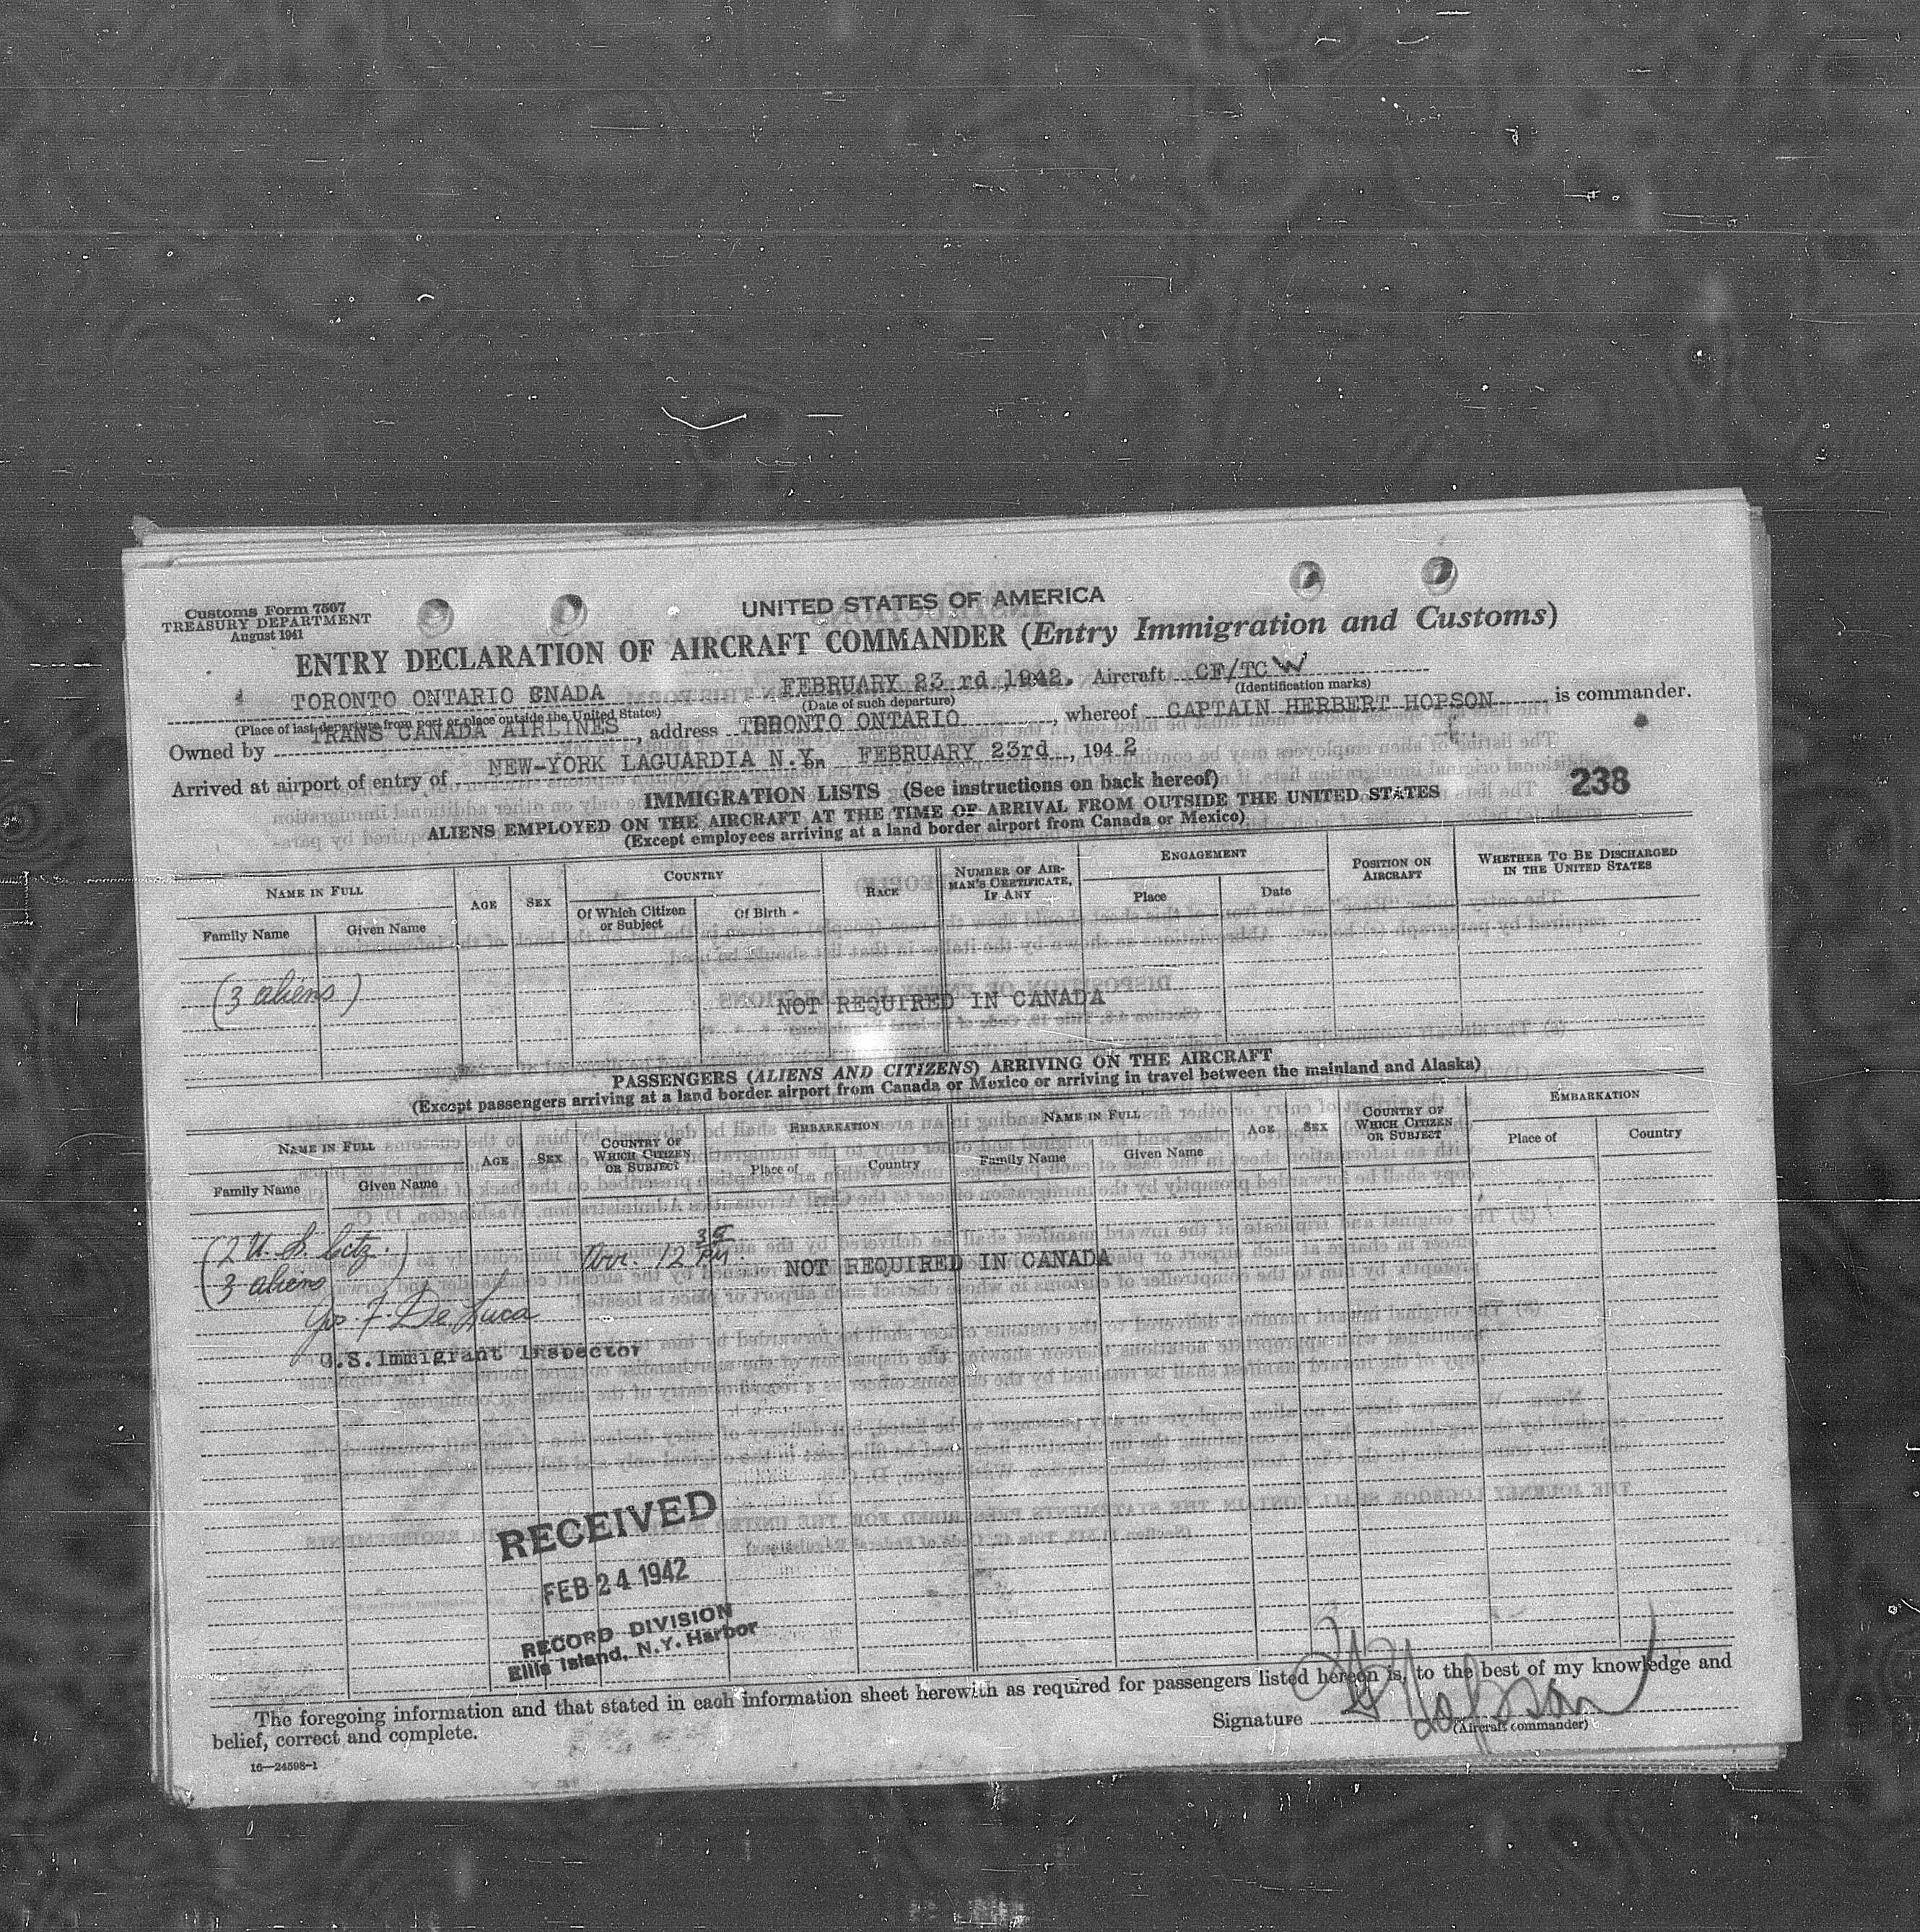 Customs Form 7507
TREASURY DEPARTMENT
August 1941
UNITED STATES OF AMERICA
ENTRY DECLARATION OF AIRCRAFT COMMANDER (Entry Immigration and Customs)
TORONTO ONTARIO CNADA FEBRUARY 23 rd ,1942. Aircraft CF/TCW
(Place of last departure from port or place outside the United States) (Date of such departure) (Identification marks)
Owned by TRANS CANADA AIRLINES, address TORONTO ONTARIO, whereof CAPTAIN HERBERT HOPSON is commander.
Arrived at airport of entry of NEW-YORK LAGUARDIA N.Y. on FEBRUARY 23rd, 1942
IMMIGRATION LISTS (See instructions on back hereof)
238
ALIENS EMPLOYED ON THE AIRCRAFT AT THE TIME OF ARRIVAL FROM OUTSIDE THE UNITED STATES
(Except employees arriving at a land border airport from Canada or Mexico)
NAME IN FULL AGE SEX COUNTRY RACE NUMBER OF AIRMAN'S CERTIFICATE, IF ANY ENGAGEMENT POSITION ON AIRCRAFT WHETHER TO BE DISCHARGED IN THE UNITED STATES
Family Name Given Name Of Which Citizen or Subject Of Birth Place Date
(3 aliens)
NOT REQUIRED IN CANADA
PASSENGERS (ALIENS AND CITIZENS) ARRIVING ON THE AIRCRAFT
(Except passengers arriving at a land border airport from Canada or Mexico or arriving in travel between the mainland and Alaska)
NAME IN FULL AGE SEX COUNTRY OF WHICH CITIZEN OR SUBJECT EMBARKATION NAME IN FULL AGE SEX COUNTRY OF WHICH CITIZEN OR SUBJECT EMBARKATION
Family Name Given Name Place of Country Family Name Given Name Place of Country
(2 U. S. Citz.)
3 aliens
Arr. 12 35 PM
NOT REQUIRED IN CANADA
Jos. F. De Luca
U.S.Immigrant Inspector
RECEIVED
FEB 24 1942
RECORD DIVISION
Ellis Island, N.Y. Harbor
The foregoing information and that stated in each information sheet herewith as required for passengers listed hereon is, to the best of my knowledge and
belief, correct and complete.
Signature H Hopson
(Aircraft commander)
16—24598-1